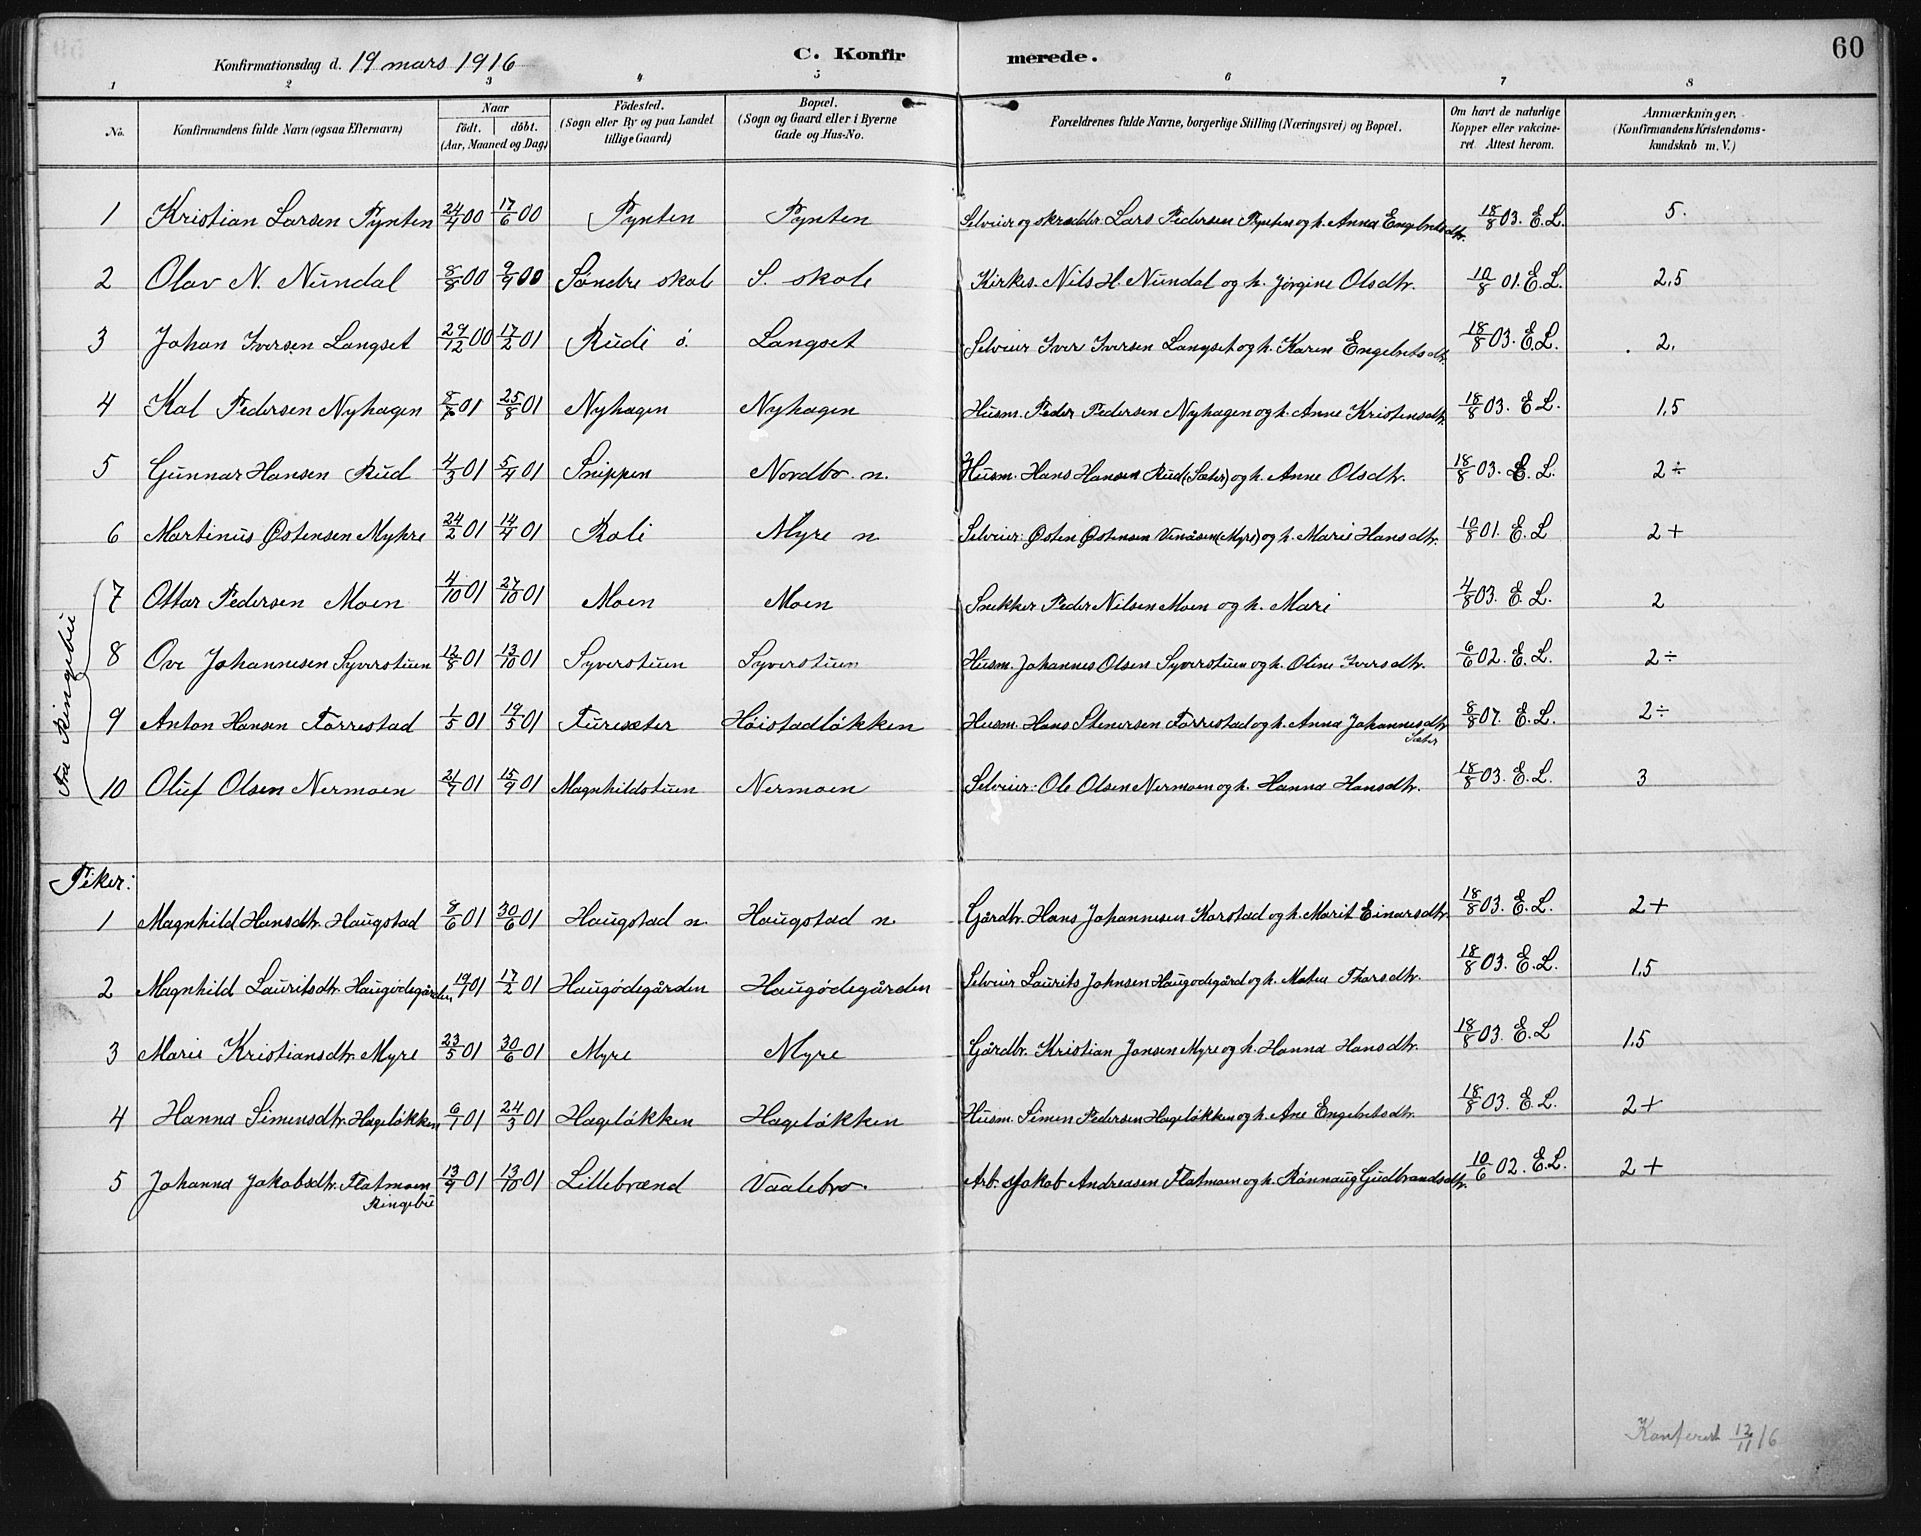 60
Konfirmationsdag d. 19 mars 1916 C. Konfirmerede.
1 2 3 4 5 6 7 8
No. Konfirmandens fulde Navn (ogsaa Efternavn) Naar födt. döbt. (Aar, Maaned og Dag) Födested. (Sogn eller By og paa Landet tillige Gaard) Bopæl. (Sogn og Gaard eller i Byerne Gade og Hus-No. Forældrenes fulde Navne, borgerlige Stilling (Næringsvei) og Bopæl. Om havt de naturlige Kopper eller vakcineret. Attest herom. Anmærkninger. (Konfirmandens Kristendomskundskab m. V.)
1 Kristian Larsen Pynten 24/4 00 17/6 00 Pynten Pynten Selveier og skrædder Lars Pedersen Pynten og h. Anna Engebretsdtr. 18/8 03. E.L. 5.
2 Olav N. Nundal 8/8 00 9/9 00 Søndre skole S. skole Kirkes. Nils H. Nundal og h. Jørgine Olsdtr. 10/8 01. E.L. 2,5
3 Johan Iversen Langset 29/12 00 17/2 01 Rudi ö. Langset Selveier Iver Iversen Langset og h. Karen Engebretsdtr. 18/8 03. E.L. 2.
4 Kal Pedersen Nyhagen 01 25/8 01 Nyhagen Nyhagen Husm. Peder Pedersen Nyhagen og h. Anne Kristensdtr. 18/8 03. E.L. 1,5
5 Gunnar Hansen Rud 4/3 01 5/4 01 Snippen Nordbo. n. Husm. Hans Hansen Rud (Sæter) og h. Anne Olsdtr. 18/8 03. E.L. 2÷
6 Martinus Østensen Myhre 24/2 01 14/4 01 Roli Myre n Selveier: Østen Østensen Venåsen (Myre) og h. Marie Hansdtr. 10/8 01. E.L 2+
Fra Ringebu
7 Ottar Pedersen Moen 4/10 01 27/10 01 Moen Moen Snekker Peder Nilsen Moen og h. Mari 4/8 03. E.L. 2
8 Ove Johannesen Syverstuen 12/8 01 13/10 01 Syverstuen Syverstuen Husm. Johannes Olsen Syverstuen og h. Oline Iversdtr. 6/6 02. E.L. 2÷
9 Anton Hansen Forrestad 1/5 01 19/5 01 Furesæter Höistadløkken Husm. Hans Stenersen Forrestad og h. Anna Johannesdtr. Sæter 8/8 07. E.L. 2÷
10 Oluf Olsen Nermoen 21/7 01 15/9 01 Magnhildstuen Nermoen Selveier: Ole Olsen Nermoen og h. Hanna Hansdtr. 18/8 03. E.L. 3
Piker:
1 Magnhild Hansdtr. Haugstad 8/6 01 30/6 01 Haugstad n. Haugstad n. Gårdbr. Hans Johannesen Korstad og h. Marit Einarsdtr. 18/8 03. E.L. 2+
2 Magnhild Lauritsdtr. Haugødegården 19/1 01 17/2 01 Haugödegården Haugödegården Selveier Laurits Johnsen Haugødegård og h. Matea Thorsdtr. 18/8 03. E.L. 1,5
3 Marie Kristiansdtr. Myre 23/5 01 30/6 01 Myre Myre Gårdbr. Kristian Jonsen Myre og h. Hanna Hansdtr. 18/8 03. E.L 1,5
4 Hanna Simensdtr. Hageløkken 6/1 01 24/3 01 Hageløkken Hageløkken Husm. Simen Pedersen Hageløkken og h. Ane Engebretsdtr. 18/8 03. E.L. 2+
5 Johanna Jakobsdtr. Flatmoen 13/9 01 13/10 01 Lillebrænd Vaalebro. Arb. Jakob Andreasen Flatmoen og h. Rønnaug Gudbrandsdtr. 10/6 02. E.L. 2+
Ringebu
Konferert 12/11 16